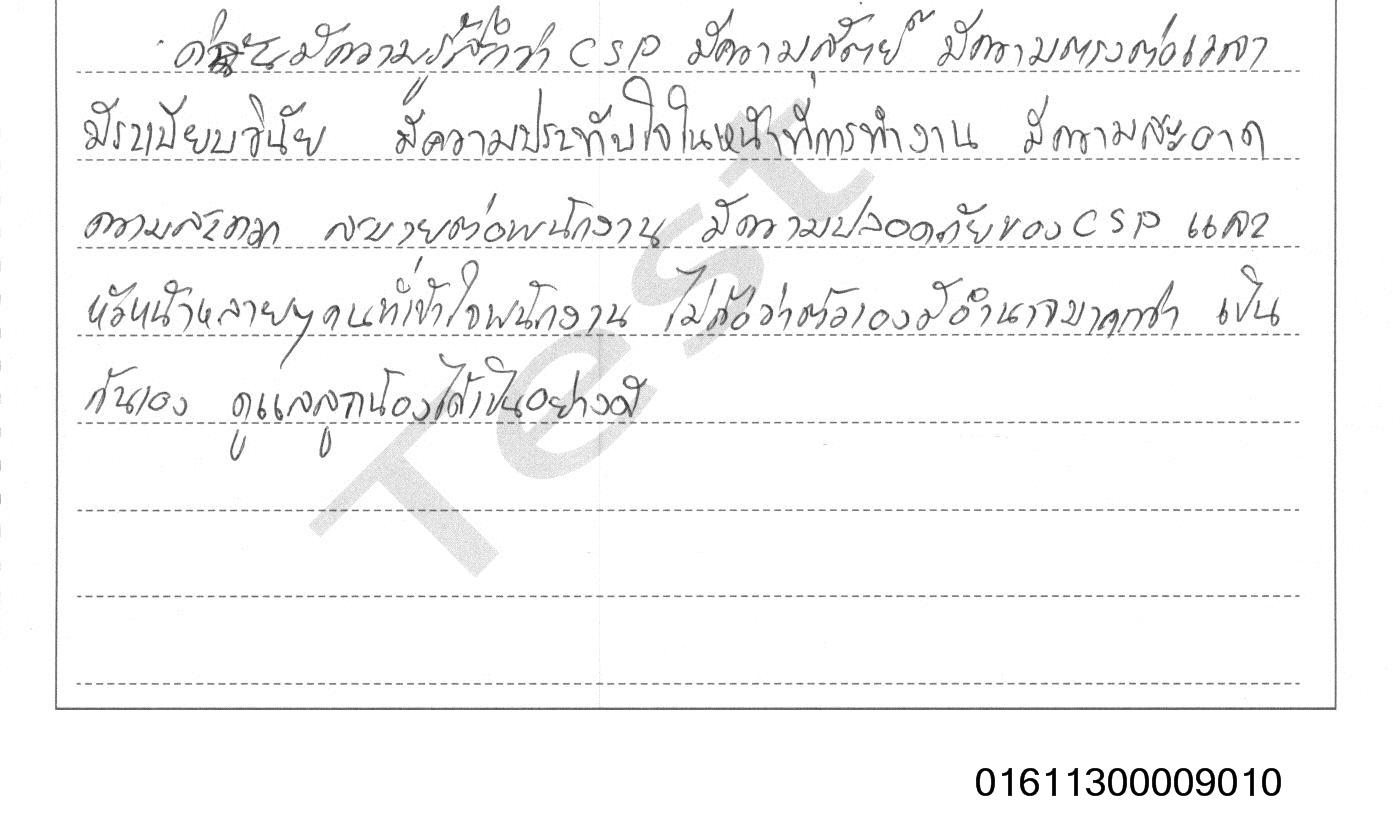 ดิฉันมีความรู้สึกว่า CSP มีความสุตย์ มีความตรงต่อเวลา
มีระเบียบวินัย มีความประทับใจในหน้าที่การทำงาน มีความสะอาด
ความสะดวก สบายต่อพนักงาน มีความปลอดภัยของ CSP และ
หัวหน้าหลายๆคนที่เข้าใจพนักงาน ไม่ถือว่าตัวเองมีอำนาจมากกว่า เป็น
กันเอง ดูแลลูกน้องได้เป็นอย่างดี
Test
01611300009010